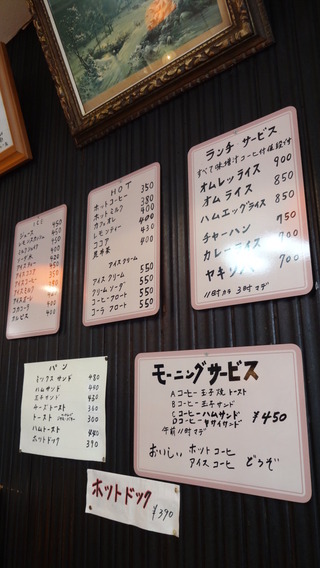 ジュース 450
ミルク 400
ソーダ水
アイスティー
アイスココア
アイスコーヒー
アイスミルク
コカコーラ
カルピス
HOT
ホットコーヒー 350
ホットミルク 380
カフェオレ 400
レモンティー 400
ココア 430
昆布茶 400
アイスクリーム
アイスクリーム 550
クリームソーダ 550
コーヒーフロート 550
コーラフロート 550
ランチ サービス
すべて味噌汁コーヒー付
オムレツライス 900
オムライス 850
ハムエッグライス 850
チャーハン 750
カレーライス 700
ヤキソバ 700
11時カラ 3時マデ
パン
ミックスサンド 480
ハムサンド 450
玉子サンド 450
チーズトースト 350
トースト 300
ハムトースト
ホットドック 390
モーニングサービス
Aコーヒー 玉子焼トースト
Bコーヒー 玉子サンド
Cコーヒー ハムサンド ¥450
Dコーヒー ヤサイサンド
午前11時マデ
おいしい ホットコーヒ
アイスコーヒ どうぞ
ホットドック
¥390